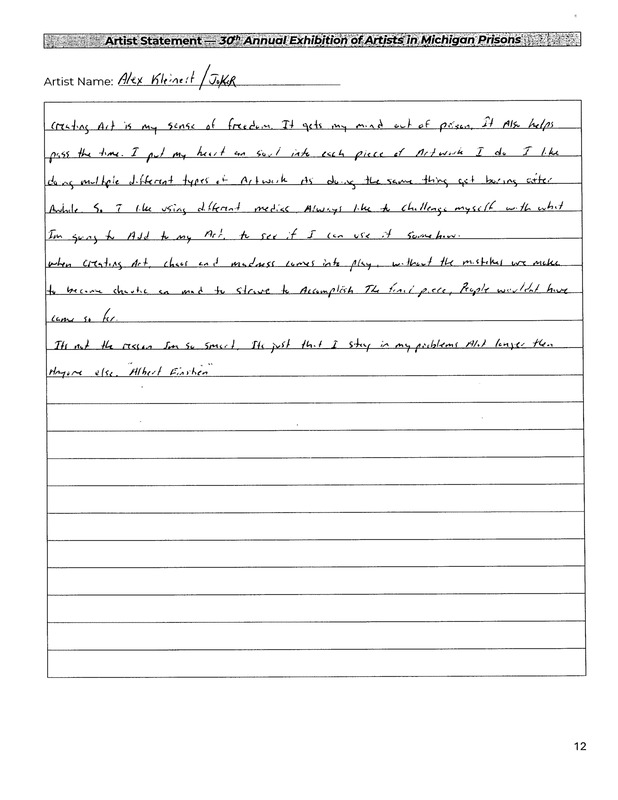 Artist Statement — 30th Annual Exhibition of Artists in Michigan Prisons
Artist Name: Alex Kleinest / JoKeR
Creating Art is my sense of freedom. It gets my mind out of prison. It Also helps
pass the time. I put my heart an soul into each piece of Artwork I do I like
doing multiple different types of Artwork As doing the same thing get boring after
Awhile. So I like using different medias Always like to challenge myself with what
Im going to Add to my Art, to see if I can use it somehow.
when creating Art, chaos and madness comes into play, without the mistakes we make
to become chaotic an mad to strive to Accomplish The final piece, People wouldnt have
come so far.
Its not the reason Im so smart, Its just that I stay in my problems Alot longer then
Anyone else. "Albert Einstien"
12